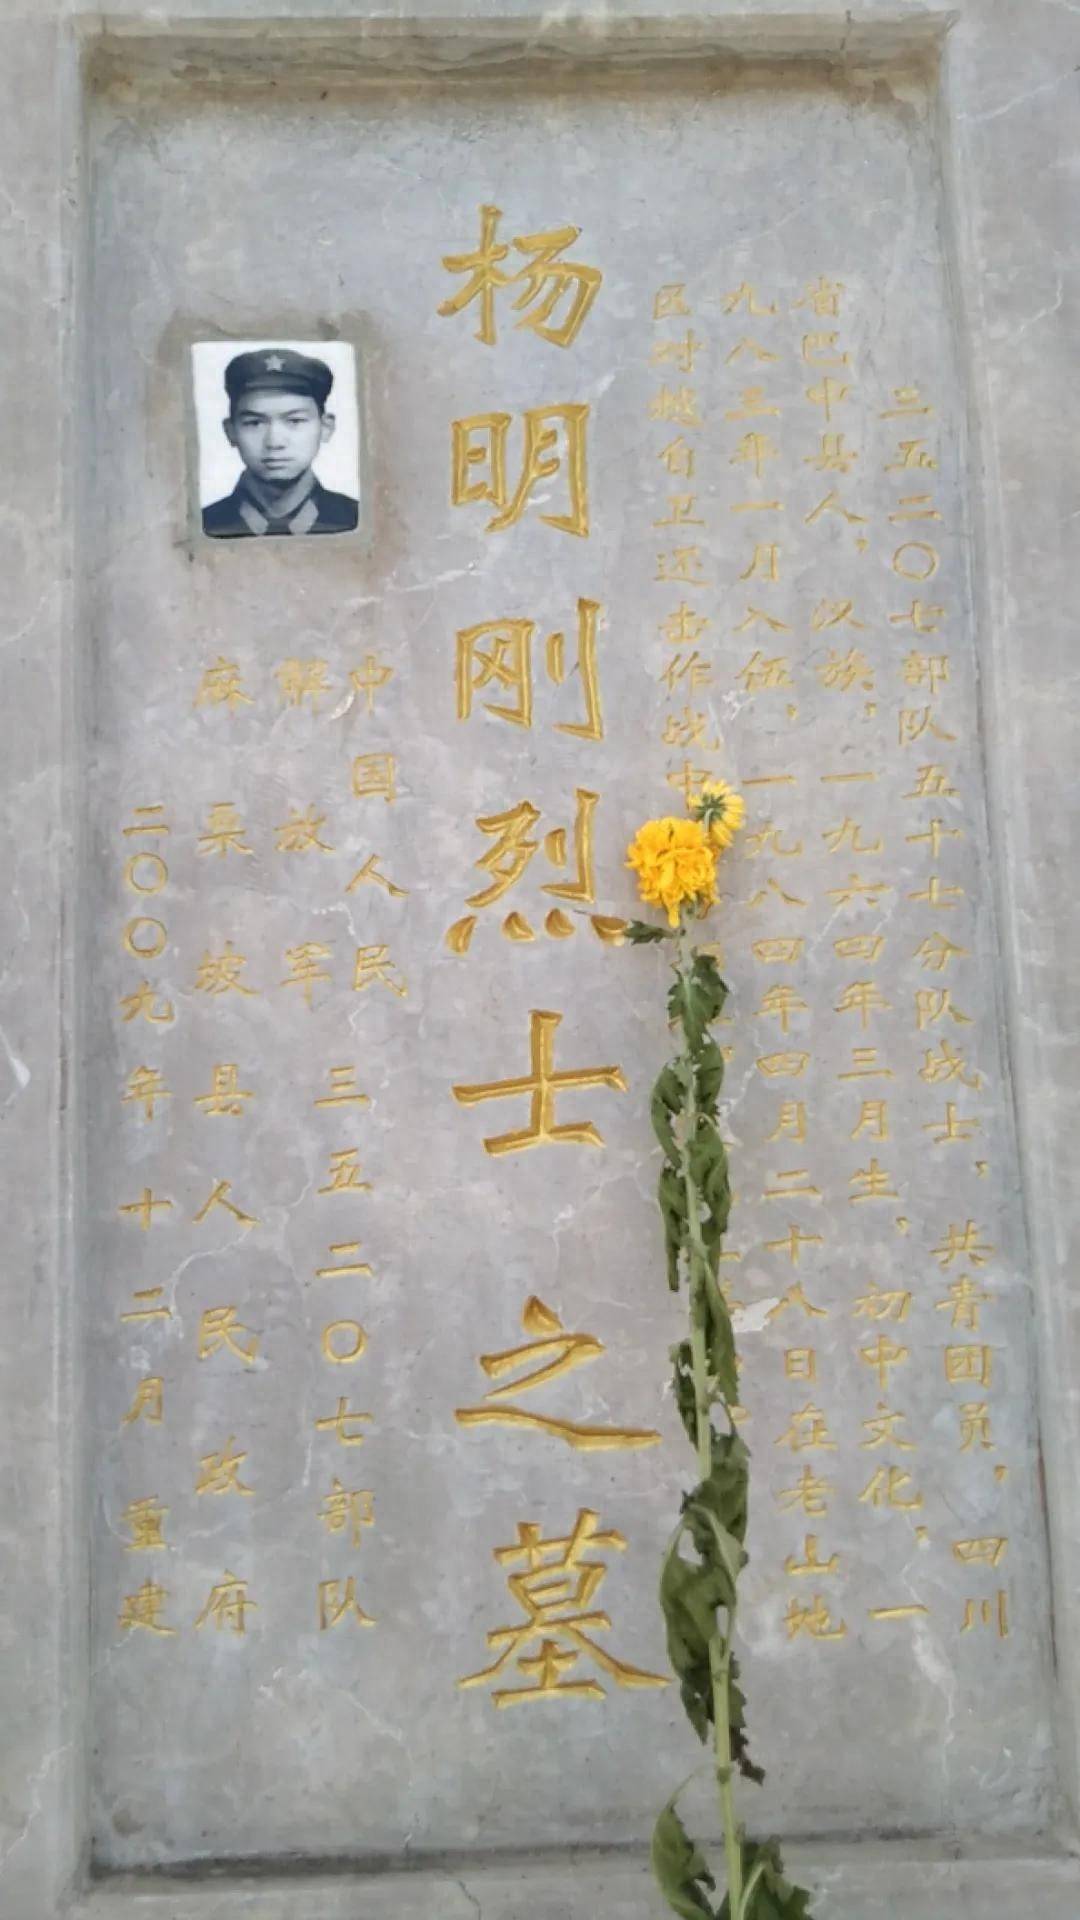 三五二〇七部队五十七分队战士，共青团员，四川
省巴中县人，汉族，一九六四年三月生，初中文化，一
九八三年一月入伍，一九八四年四月二十八日在老山地
区对越自卫还击作战中
杨明刚烈士之墓
中国人民
解放军
三五二〇七部队
麻栗坡县人民政府
二〇〇九年十二月重建